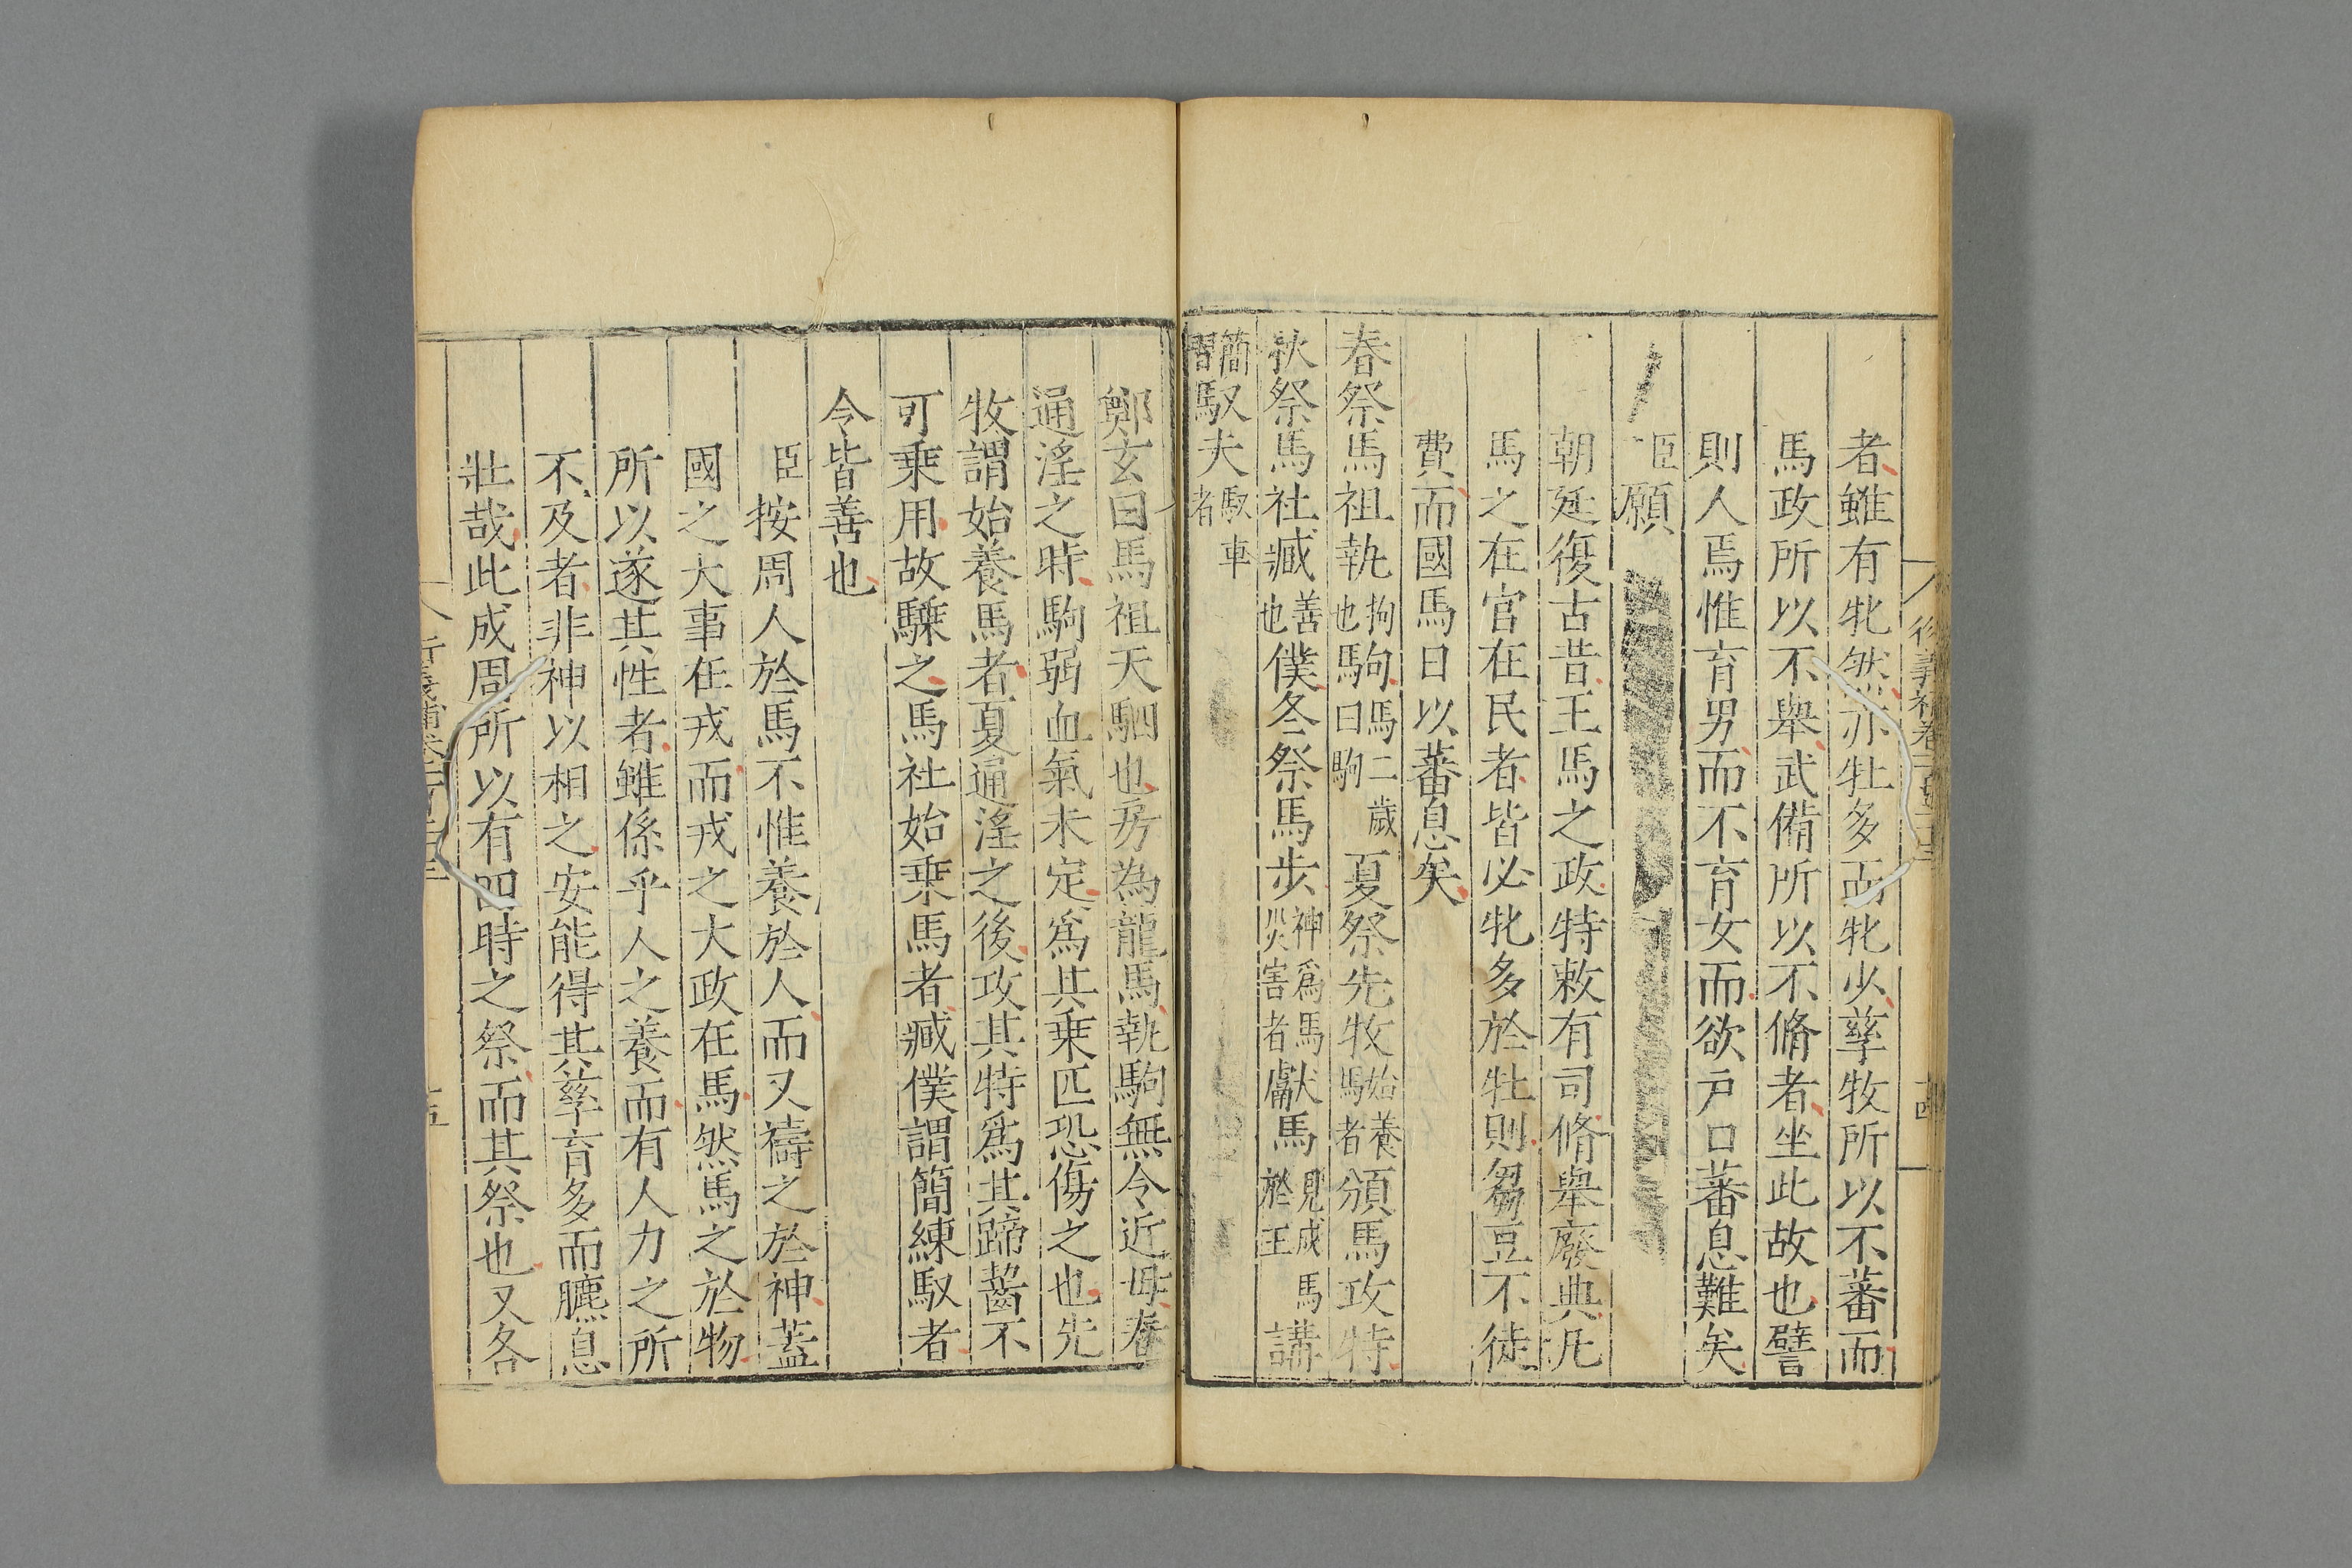 者雖有牝然亦牡多而牝少孳牧所以不蕃而
馬政所以不舉武備所以不脩者坐此故也譬
則人焉惟育男而不育女而欲戶口蕃息難矣
臣願
朝廷復古昔王馬之政特敕有司脩舉廢典凡
馬之在官在民者皆必牝多於牡則芻豆不徒
費而國馬日以蕃息矣
春祭馬祖執拘也駒馬二歲曰駒夏祭先牧始養馬者頒馬攻特
秋祭馬社臧善也僕冬祭馬步神為馬災害者獻馬見成馬於王講
簡習馭夫馭車者
鄭玄曰馬祖天駟也房為龍馬執駒無令近母春
通淫之時駒弱血氣未定為其乗匹恐傷之也先
牧謂始養馬者夏通淫之後攻其特為其蹄齧不
可乗用故騬之馬社始乗馬者臧僕謂簡練馭者
令皆善也
臣按周人於馬不惟養於人而又禱之於神蓋
國之大事在戎而戎之大政在馬然馬之於物
所以遂其性者雖係乎人之養而有人力之所
不及者非神以相之安能得其孳育多而臕息
壯哉此成周所以有四時之祭而其祭也又各